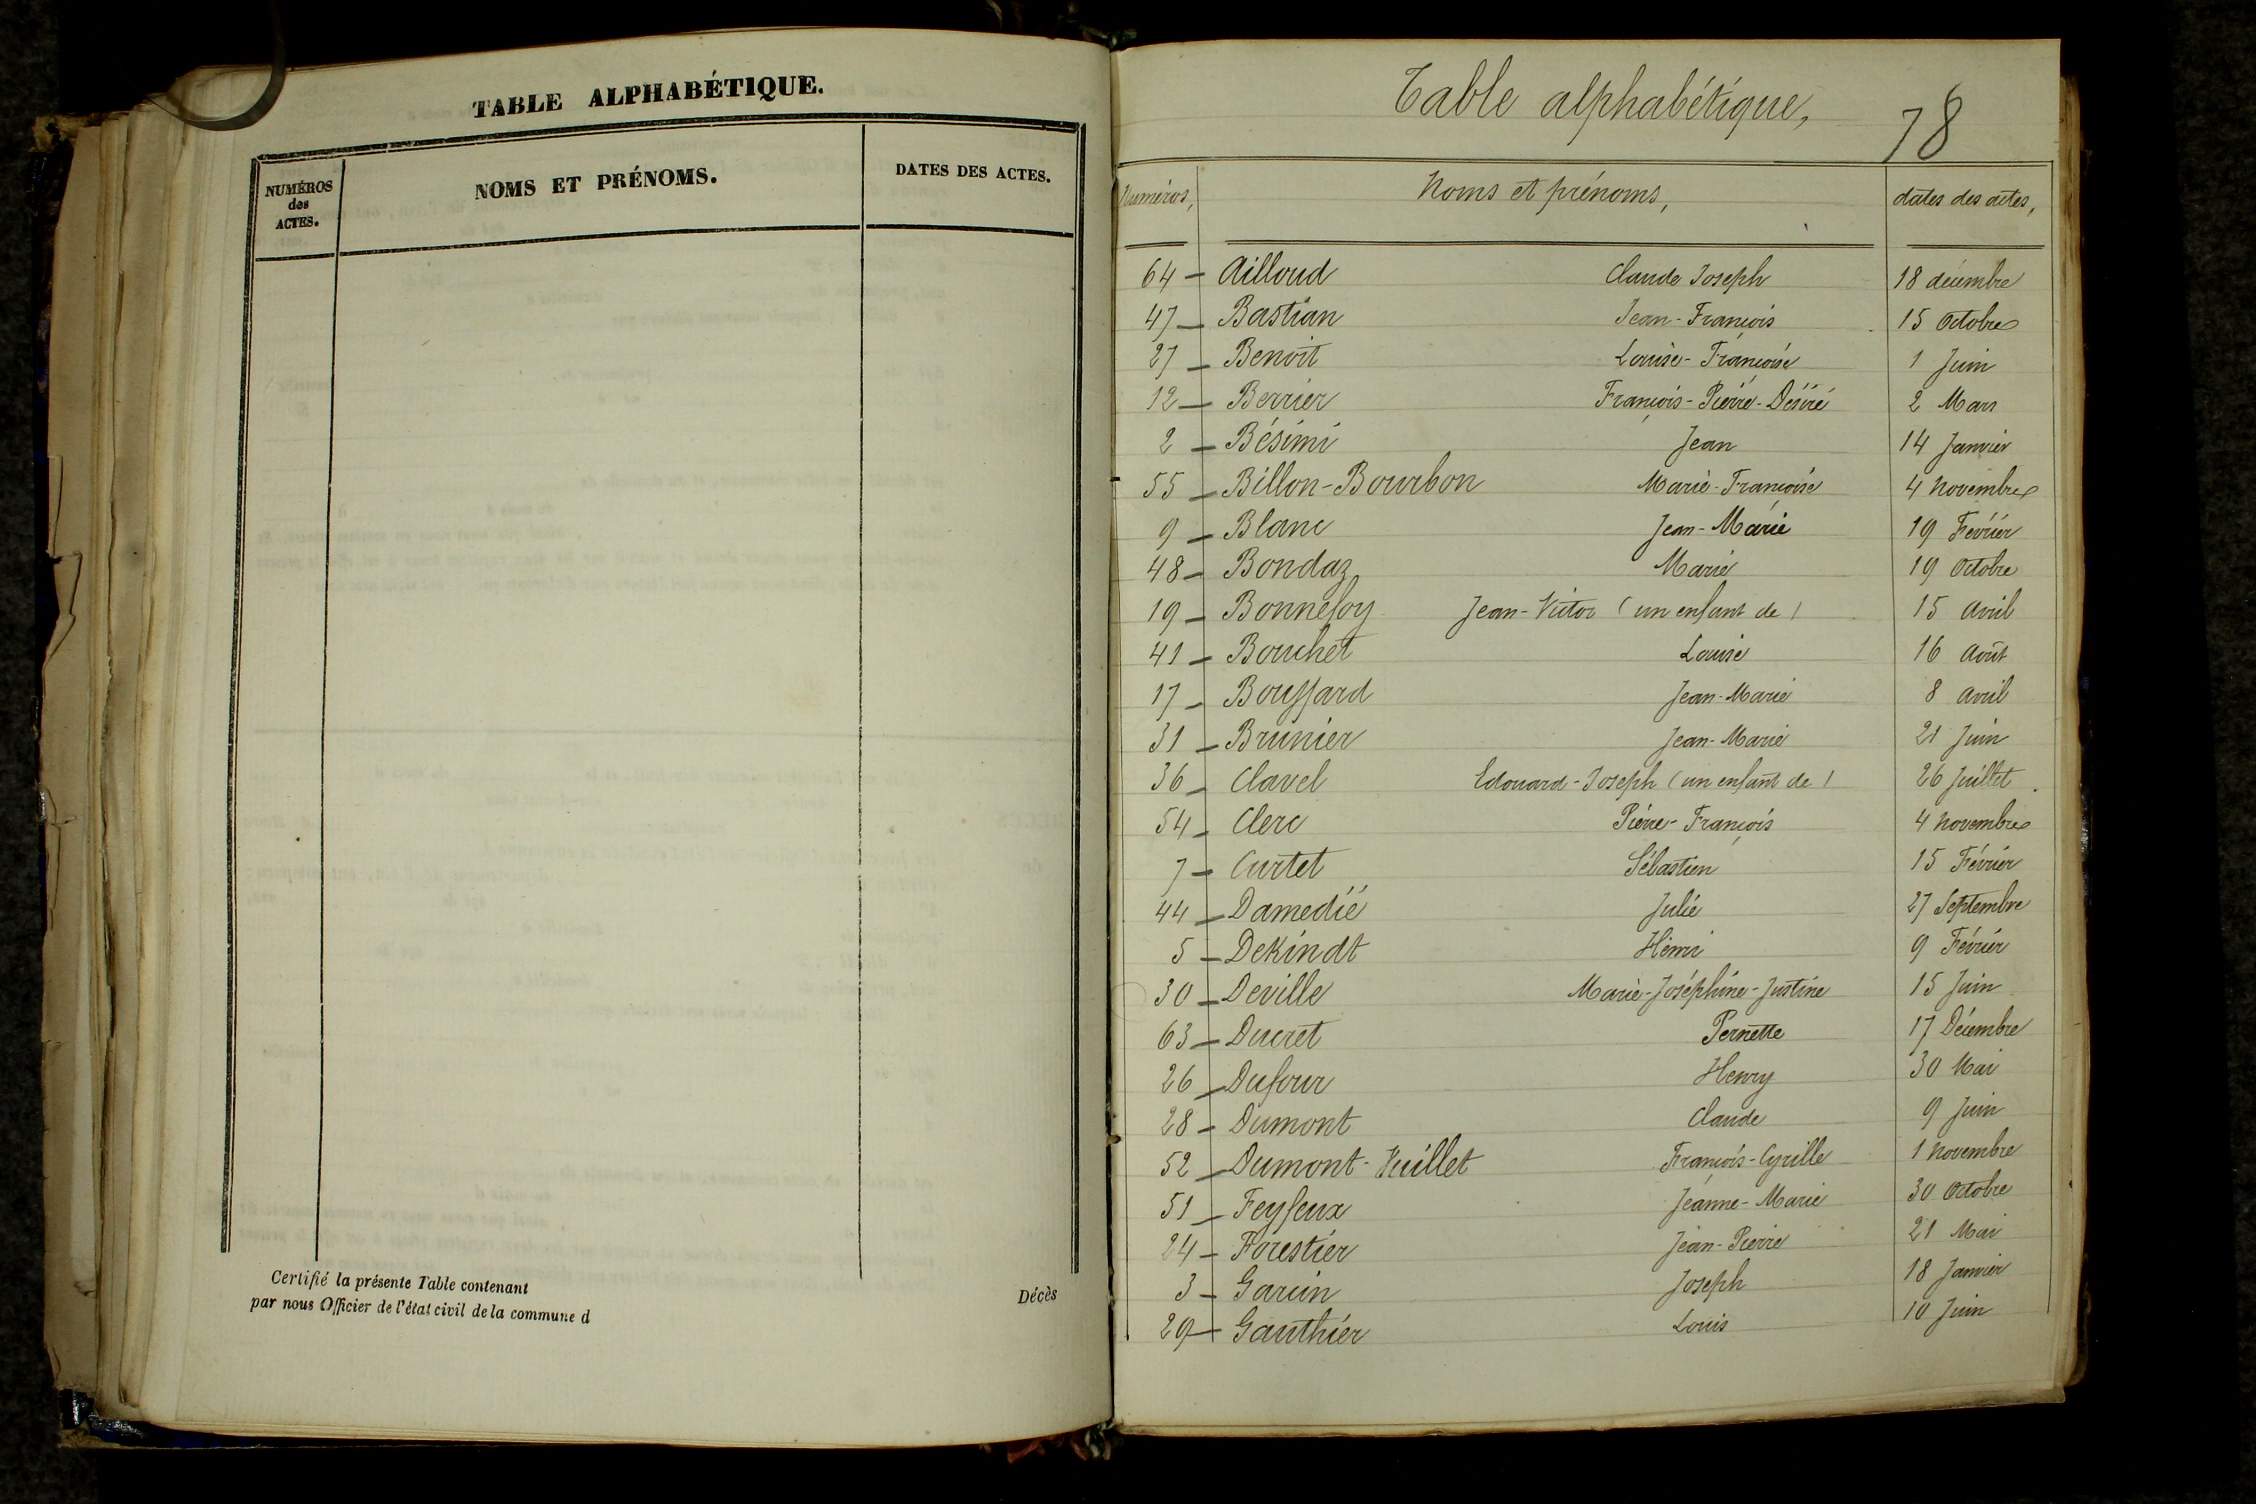 TABLE ALPHABÉTIQUE.
NUMÉROS
des
ACTES.
NOMS ET PRÉNOMS.
DATES DES ACTES.
Certifié la présente Table contenant Décès
par nous Officier de l'état civil de la commune d
Table alphabétique,
78
Numéros, Noms et prénoms, dates des actes,
64 - Ailloud Claude Joseph 18 décembre
47 - Bastian Jean-François 15 Octobre
27 - Benoit Louise-Françoise 1 Juin
12 - Berrier François-Pierre-Désiré 2 Mars
2 - Bésimi Jean 14 Janvier
55 - Billon-Bourbon Marie-Françoise 4 Novembre
9 - Blanc Jean-Marie 19 Février
48 - Bondaz Marie 19 Octobre
19 - Bonnefoy Jean-Victor (un enfant de) 15 Avril
41 - Bouchet Louise 16 Août
17 - Bouffard Jean-Marie 8 Avril
31 - Brunier Jean-Marie 21 Juin
36 - Clavel Edouard-Joseph (un enfant de) 26 Juillet
54 - Clerc Pierre-François 4 Novembre
7 - Curtet Sébastien 15 Février
44 - Damedié Julie 27 Septembre
5 - Dekindt Henri 9 Février
30 - Deville Marie-Joséphine-Justine 15 Juin
63 - Ducret Pernette 17 Décembre
26 - Dufour Henry 30 Mai
28 - Dumont Claude 9 Juin
52 - Dumont-Vuillet François-Cyrille 1 Novembre
51 - Feyfeux Jeanne-Marie 30 Octobre
24 - Forestier Jean-Pierre 21 Mai
3 - Garin Joseph 18 Janvier
29 - Gauthier Louis 10 Juin